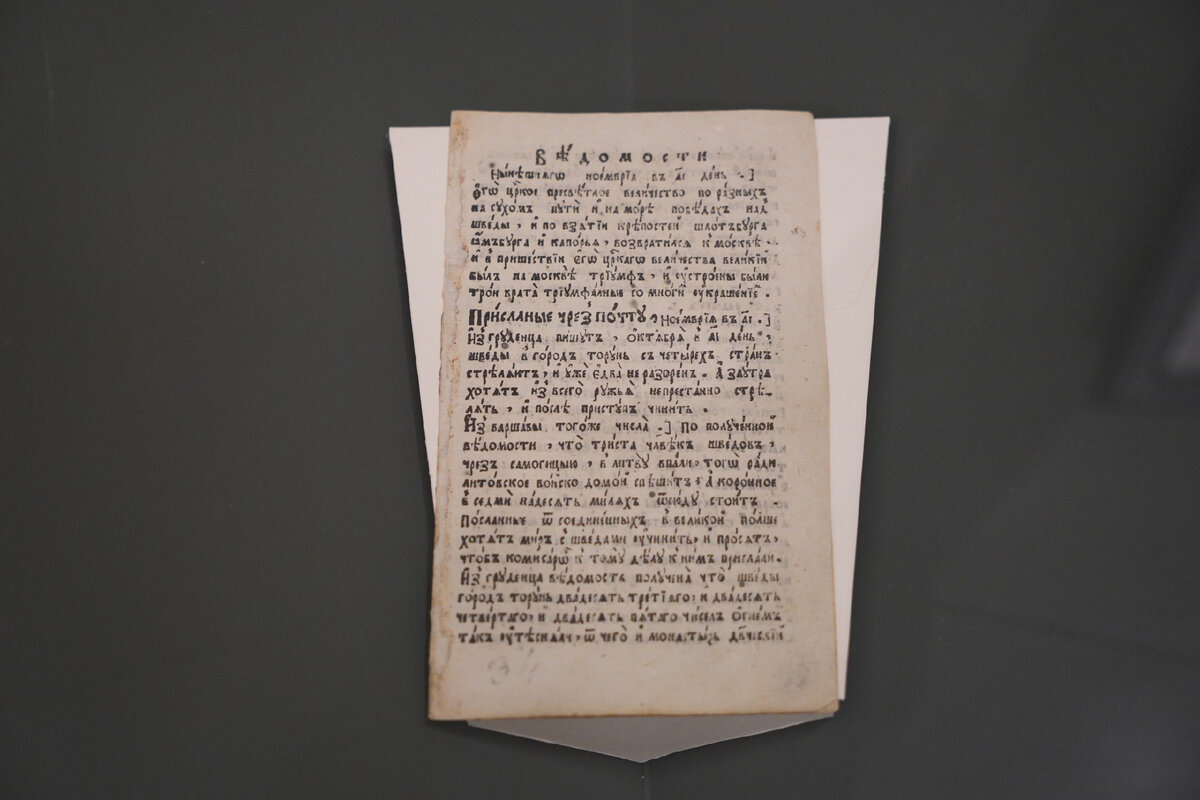 Вѣ́домости
Ны́нѣшнягѡ ное́мврїа въ а҃і де́нь .]
Єгѡ̀ цр҃кое пресвѣ́тлое вели́чество по ра́зныхъ
на сухо́мъ путѝ и҆ на мо́рѣ побѣ́дахъ над̾
шве́ды , и҆ по взѧ́тїи крѣ́постей шлотъбурга
 и҆ капо́рьѧ , возврати́лсѧ к̾ москвѣ̀ .
и҆ в̾ прише́ствїи є҆гѡ̀ цр҃кагѡ вели́чества вели́кїй
бы́лъ на москвѣ̀ трїу́мѳъ , и҆ оу҆стро́ены бы́ли
трои врата̀ трїумѳа́лные со мно́гїй оу҆краше́нїе .
При́сланые чрез̾ по́чту , Ное́мврїа въ а҃і .]
И҆з̾ гру́денца пи́шутъ , ѻ҆ктѧ́брѧ в̾ а҃і де́нь ,
шве́ды в̾ го́родъ то́рунь съ четы́рехъ стра́нъ
стрѣлѧ́ютъ , и҆ у҆жѐ є҆два̀ не разоре́н . А҆ за́утра
хотѧ́тъ и҆з̾ всего̀ ружьѧ̀ непреста́нно стрѣ-
лѧ́ть , и҆ по́слѣ при́ступъ чини́ть .
И҆з̾ варша́вы того́же числа̀ .] По полꙋче́нной
вѣ́домости , что̀ три́ста чл҃вѣкъ шве́довъ ,
чрез̾ самоги́цыю , в̾ литвꙋ̀ впа́ли , тогѡ̀ ра́ди
лито́вское во́йско домо́й спѣши́тъ , А҆ коро́нное
в̾ седмѝ на́десѧть ми́лѧхъ ѿсю́дꙋ стои́тъ .
По́сланные ѿ соедине́нныхъ в̾ вели́кой по́лше
хотѧ́тъ ми́ръ с̾ шве́дами оу҆чини́ть , и҆ про́сѧтъ ,
что́бъ комисарѡ́в к̾ томꙋ̀ дѣ́лꙋ к̾ ни́мъ присла́ли .
И҆з̾ гру́денца вѣ́домость полꙋчена̀ что̀ шве́ды
го́родъ то́рунь два́десѧть тре́тїаго , и҆ два́десѧть
четве́ртаго , и҆ два́десѧть пѧ́таго чи́селъ ѻ҆гне́мъ
та́къ оу҆тѣснѧ́ли , ѿ чего̀ и҆ монасты́рь дв҃ческїй
34